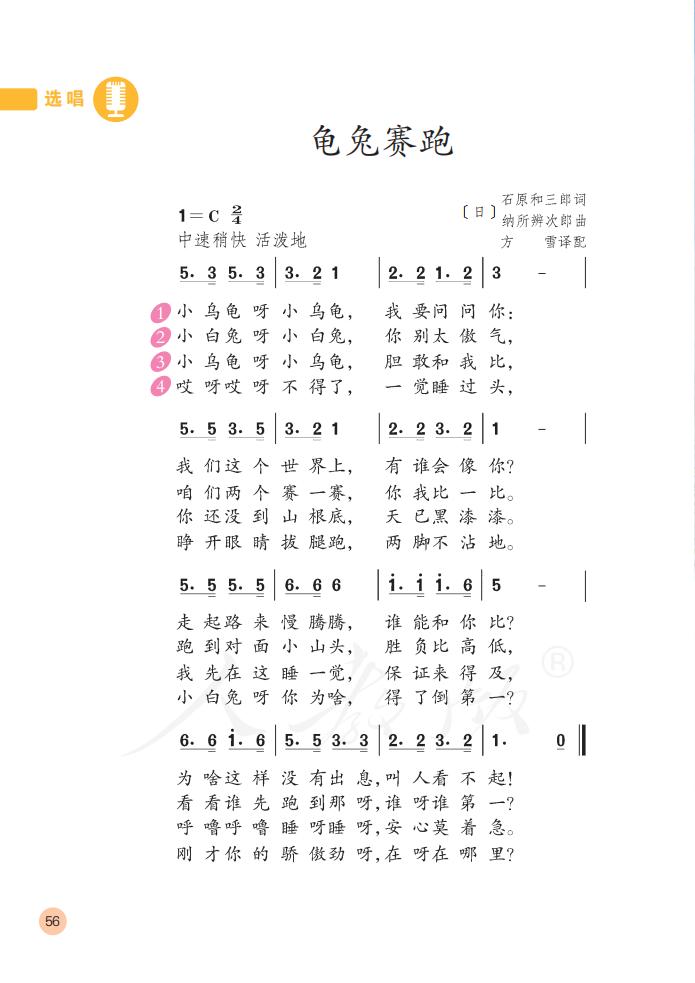 选唱
龟兔赛跑
1=C 2/4
中速稍快 活泼地
〔日〕石原和三郎词
纳所辨次郎曲
方 雪译配
5. 3 5. 3 | 3. 2 1 | 2. 2 1. 2 | 3 - |
1 小乌龟呀小乌龟， 我要问问你：
2 小白兔呀小白兔， 你别太傲气，
3 小乌龟呀小乌龟， 胆敢和我比，
4 哎呀哎呀不得了， 一觉睡过头，
5. 5 3. 5 | 3. 2 1 | 2. 2 3. 2 | 1 - |
我们这个世界上， 有谁会像你？
咱们两个赛一赛， 你我比一比。
你还没到山根底， 天已黑漆漆。
睁开眼睛拔腿跑， 两脚不沾地。
5. 5 5. 5 | 6. 6 6 | i. i i. 6 | 5 - |
走起路来慢腾腾， 谁能和你比？
跑到对面小山头， 胜负比高低，
我先在这睡一觉， 保证来得及，
小白兔呀你为啥， 得了倒第一？
人教版®
6. 6 i. 6 | 5. 5 3. 3 | 2. 2 3. 2 | 1. 0 ‖
为啥这样没有出息，叫人看不起！
看看谁先跑到那呀，谁呀谁第一？
呼噜呼噜睡呀睡呀，安心莫着急。
刚才你的骄傲劲呀，在呀在哪里？
56